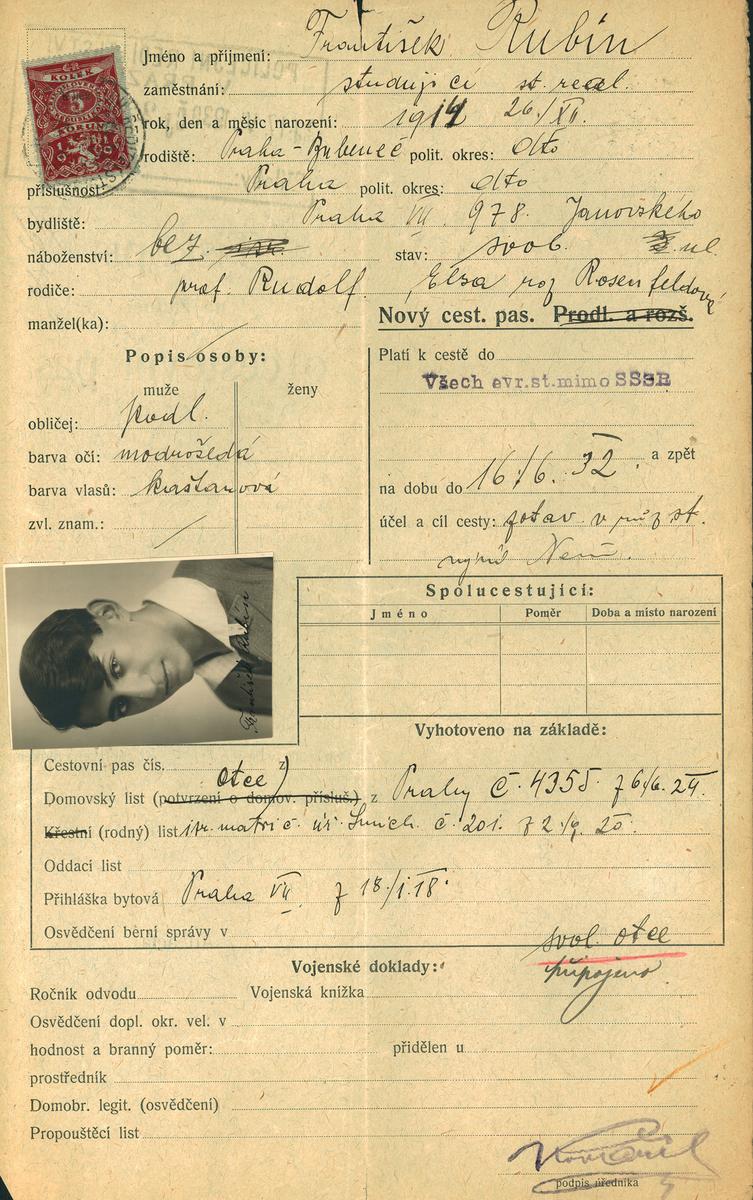 ČR
KOLEK
5
KORUN
Jméno a příjmení: František Rubín
zaměstnání: studující st. real.
rok, den a měsíc narození: 1914 26./XII.
rodiště: Praha-Bubeneč polit. okres: dto
příslušnost: Praha polit. okres: dto
bydliště: Praha VII. 978. Janovského
náboženství: bez stav: svob. ul.
rodiče: prof. Rudolf. Elsa roz Rosenfeldové
manžel(ka):
Nový cest. pas. Prodl. a rozš.
Popis osoby:
muže ženy
obličej: podl.
barva očí: modrošedá
barva vlasů: kaštanová
zvl. znam.:
Platí k cestě do
Všech evr.st.mimo SSSR
a zpět
na dobu do 16./6. 32.
účel a cíl cesty: zotav. v růz st.
nyní Něm.
František Rubín
Spolucestující:
Jméno Poměr Doba a místo narození
Vyhotoveno na základě:
Cestovní pas čís. z
otce)
Domovský list (potvrzení o domov. přísluš.) z Prahy č. 4355 z 6/6. 24.
Křestní (rodný) list isr. matri č. úř. Smích. č. 201. z 2./9. 20.
Oddací list
Přihláška bytová Praha VII z 18/I.18.
Osvědčení berní správy v
svol. otce
připojeno
Vojenské doklady:
Ročník odvodu Vojenská knížka
Osvědčení dopl. okr. vel. v
hodnost a branný poměr: přidělen u
prostředník
Domobr. legit. (osvědčení)
Propouštěcí list
podpis úředníka